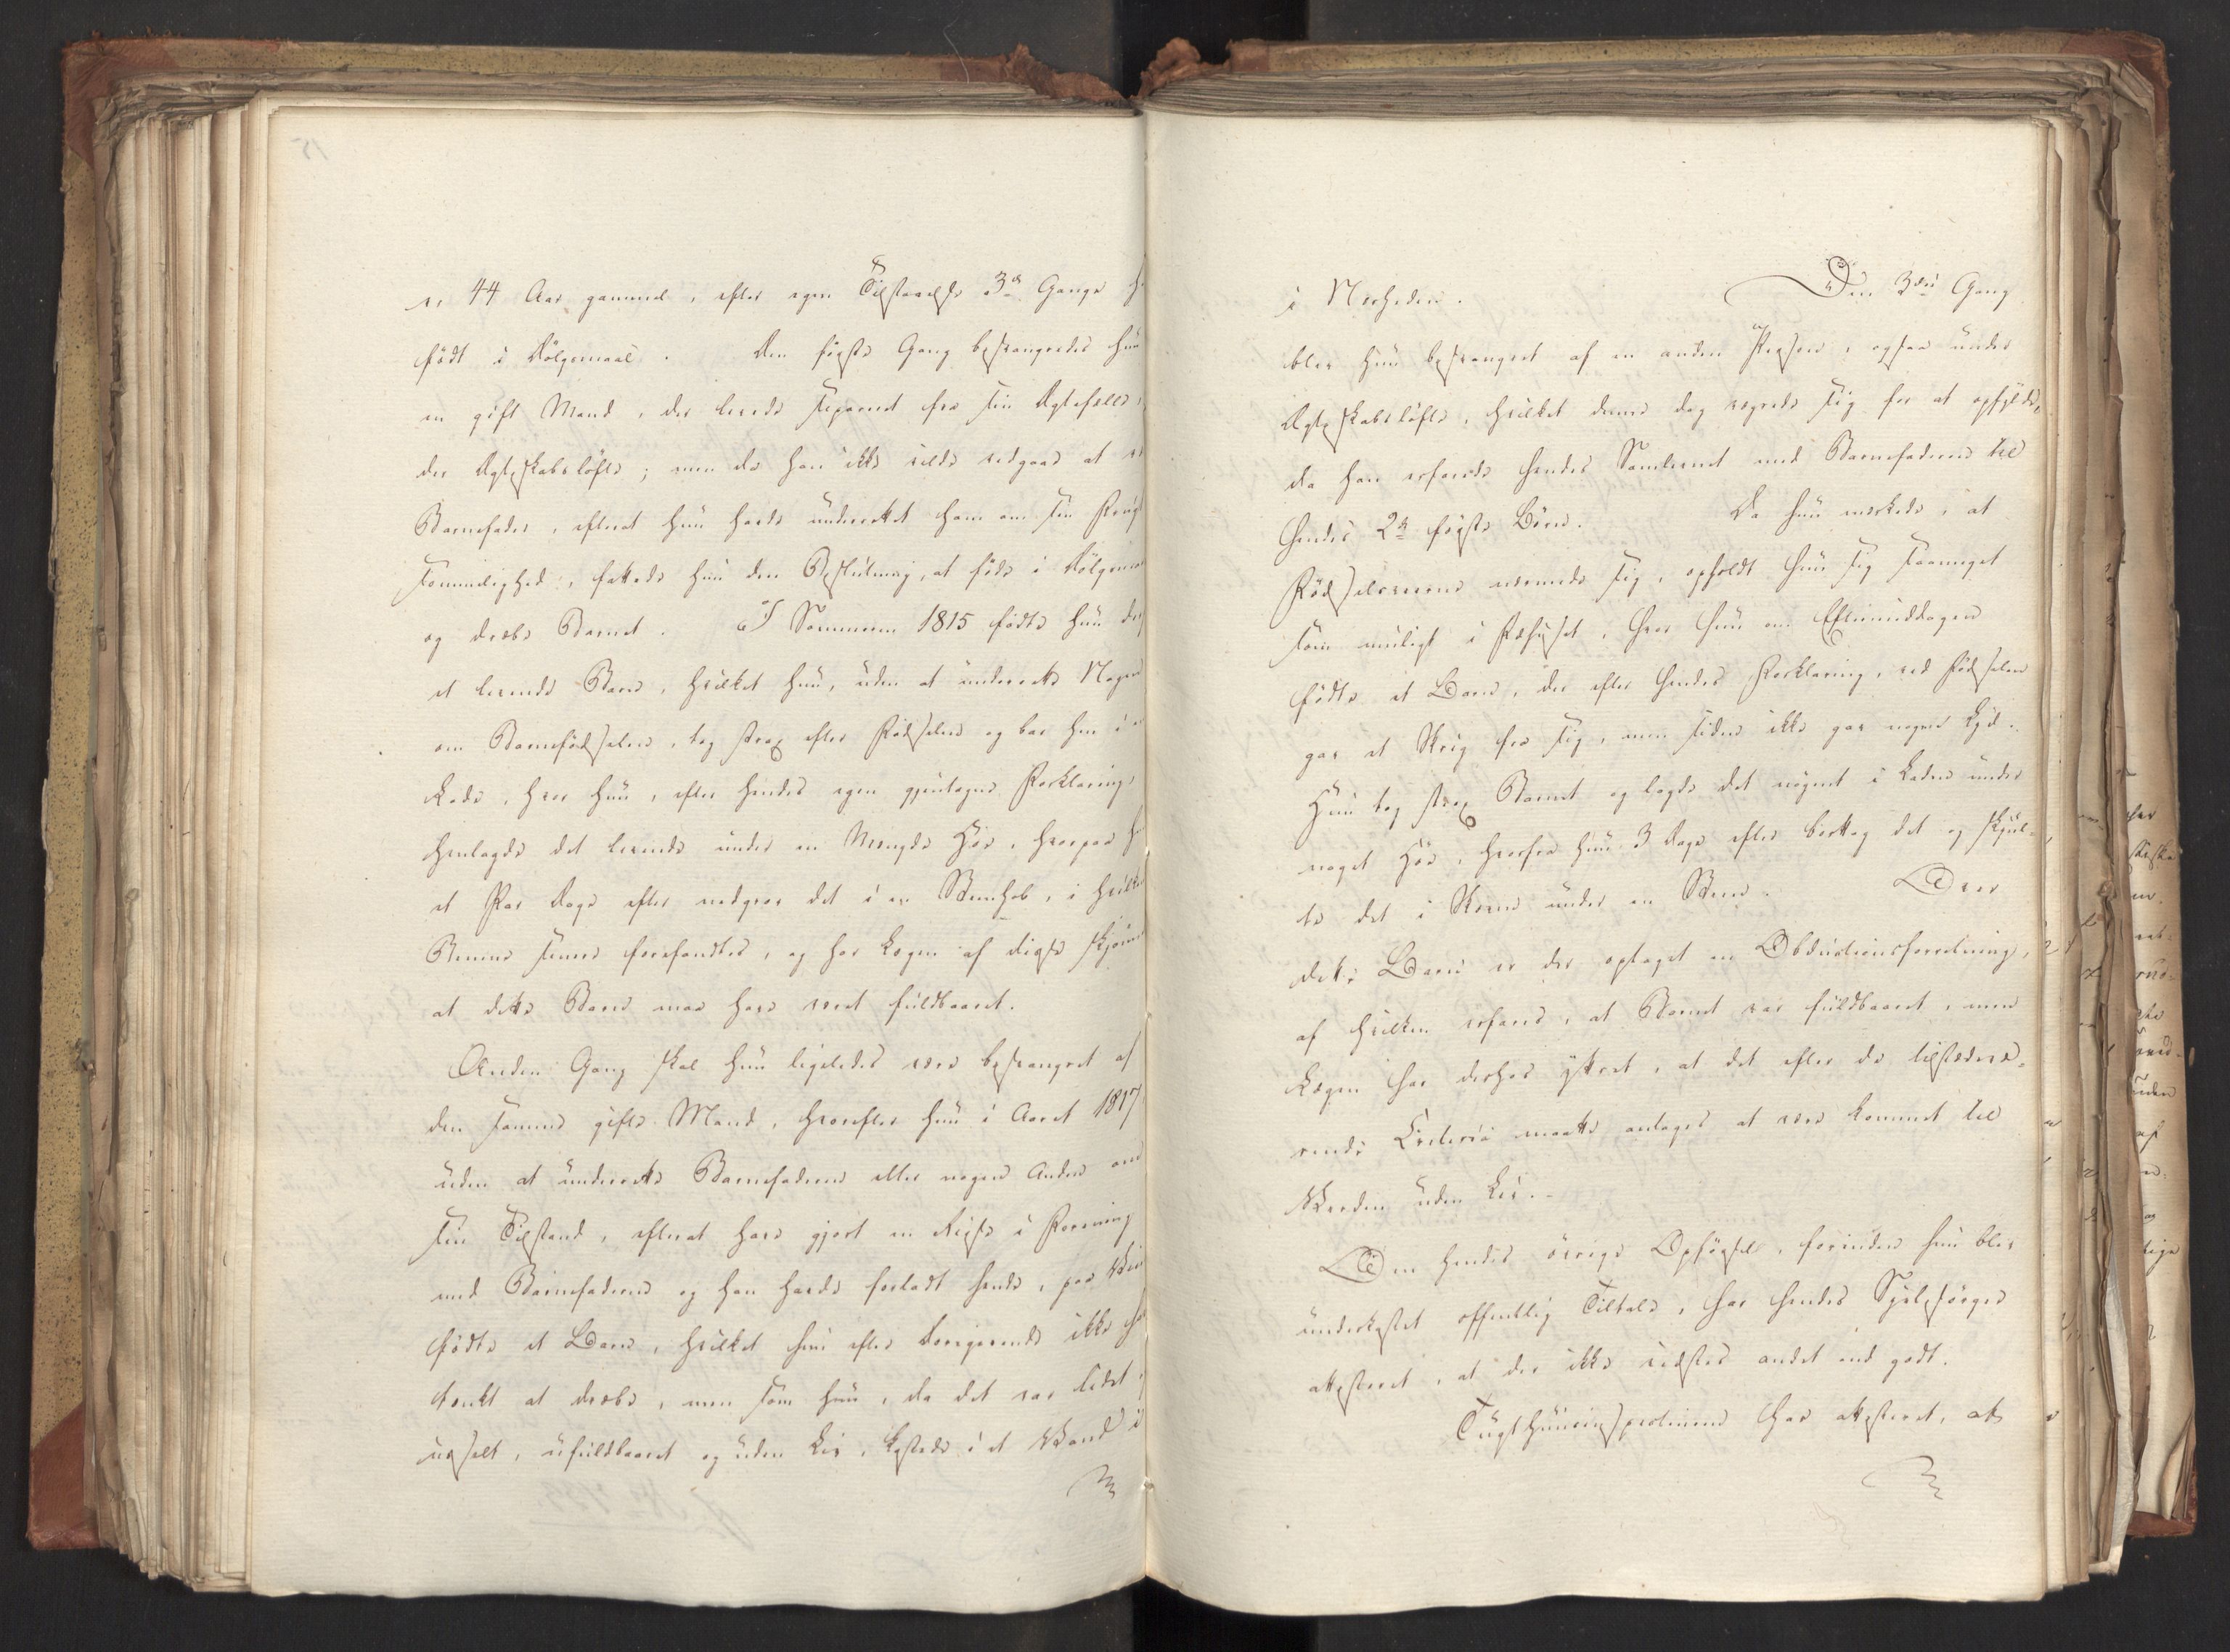 er 44 Aar gammel, efter egen Tilstaaelse 3de Gange
født i Dølgsmaal. Den første Gang besvangredes hun
en gift Mand, der levede separeret fra sin Ægtefælle,
der Ægteskabsløfte; men da han ikke vilde vedgaae at
Barnefader, efterat hun havde underrettet ham om sin Frugt
sommelighed, fattede hun den Beslutning, at føde i Dølgsmaal
og dræbe Barnet. I Sommeren 1815 fødte hun
et levende Barn, hvilket hun, uden at underrette Nogen
om Barnefødselen, tog strax efter Fødselen og bar hen i
Lade, hvor hun, efter hendes egen gjentagne Forklaring,
henlagde det levende under en Mængde Høe, hvorpaa
et Par Dage efter nedgrov det i en Steenhob, i hvilken
Benene senere forefandtes, og har Lægen af disse skjønnet
at dette Barn maa have været fuldbaaret.
Anden Gang skal hun ligeledes være besvangret af
den samme gifte Mand, hvorefter hun i Aaret 1817
uden at underrette Barnefaderen eller nogen Anden om
sin Tilstand, efterat have gjort en Reise i Forening
med Barnefaderen og han havde forladt hende, paa
fødte et Barn, hvilket hun efter Foregivende ikke
tænkt at dræbe, men som hun, da det var lidet,
usselt, ufuldbaaret og uden Liv, kastede i et Vand i
i Nærheden. Den 3die Gang
blev hun besvangret af en anden Person, ogsaa under
Ægteskabsløfte, hvilket denne dog vægrede sig for at opfylde,
da han erfarede hendes Samlevnet med Barnefaderen til
hendes 2de første Børn. Da hun mærkede, at
Fødselsveerne nærmede sig, opholdt hun sig saameget
som muligt i Fæhuset, hvor hun om Eftermiddagen
fødte et Barn, der efter hendes Forklaring, ved Fødselen
gav et Skrig fra sig, men siden ikke gav nogen Lyd.
Hun tog strax Barnet og lagde det nøgent i Laden under
noget Høe, hvorfra hun 3 Dage efter borttog det og skjul-
te det i Skoven under en Steen. Over
dette Barn er der optaget en Obductionsforretning,
af hvilken erfares, at Barnet var fuldbaaret, men
Lægen har derhos yttret, at det efter de tilstedevæ-
rende Criteria maatte antages at være kommet til
Verden uden Liv.-
Om hendes øvrige Opførsel, forinden hun blev
underkastet offentlig Tiltale, har hendes Sjelesørger
attesteret, at der ikke vidstes andet end godt.
Tugthuusinspecteuren har attesteret, at